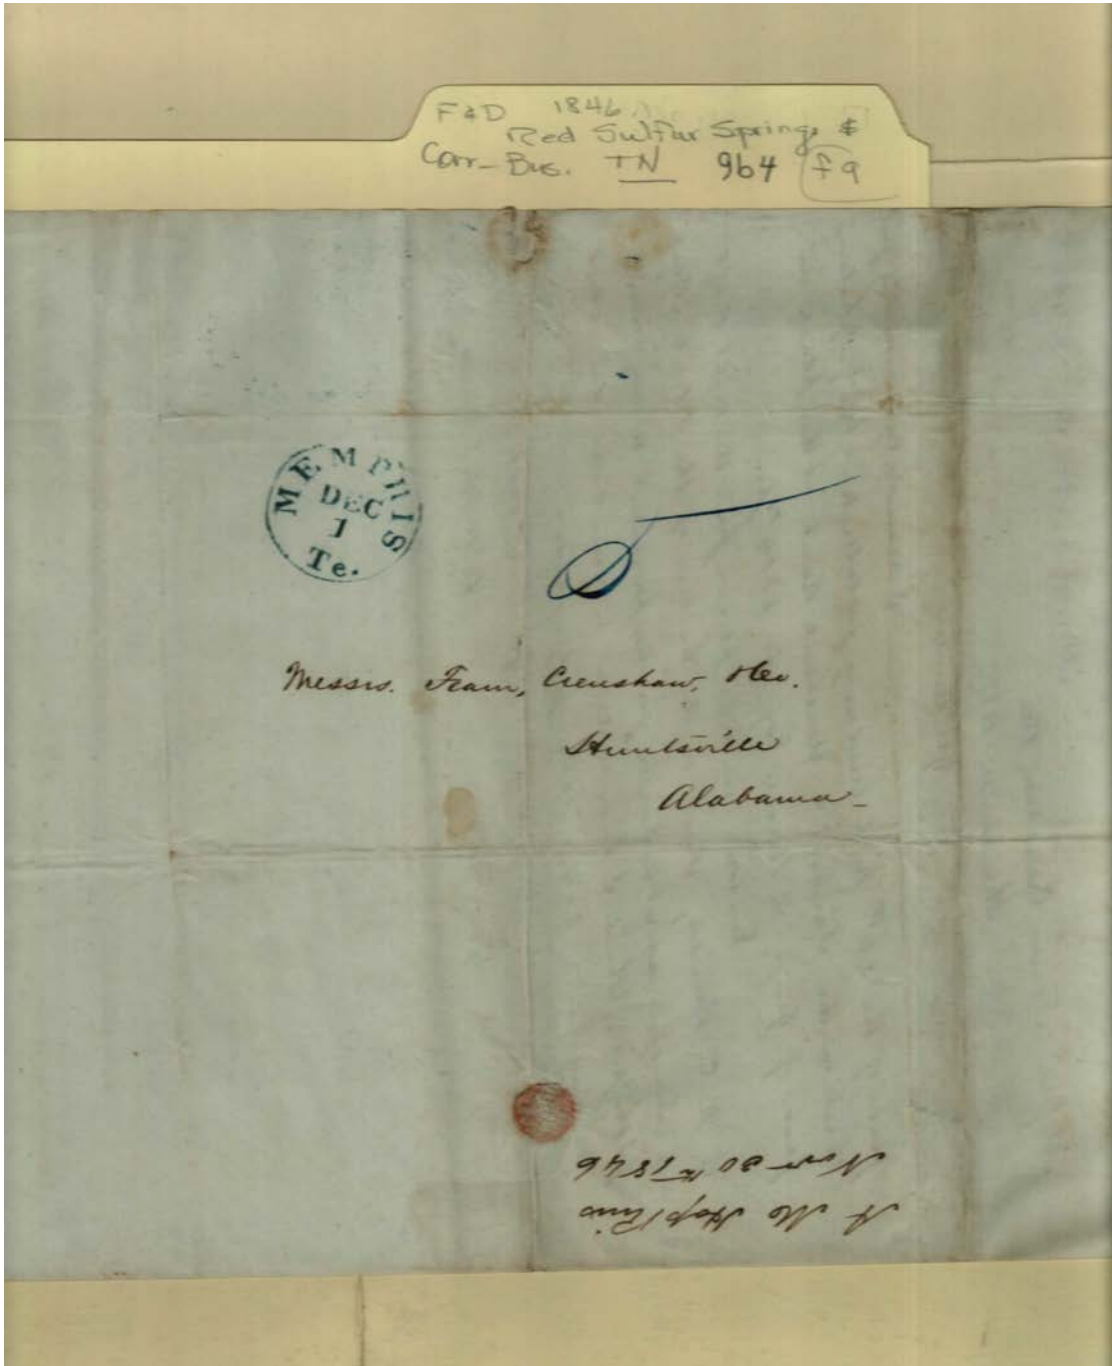 F&D 1846
Red Sulfur Springs &
Corr-Bus. TN 964 f9
MEMPHIS
DEC
1
Te.
5
Messrs. Fearn, Crenshaw, &Co.
Huntsville
Alabama
A M Hopkins
Nov 30th 1846